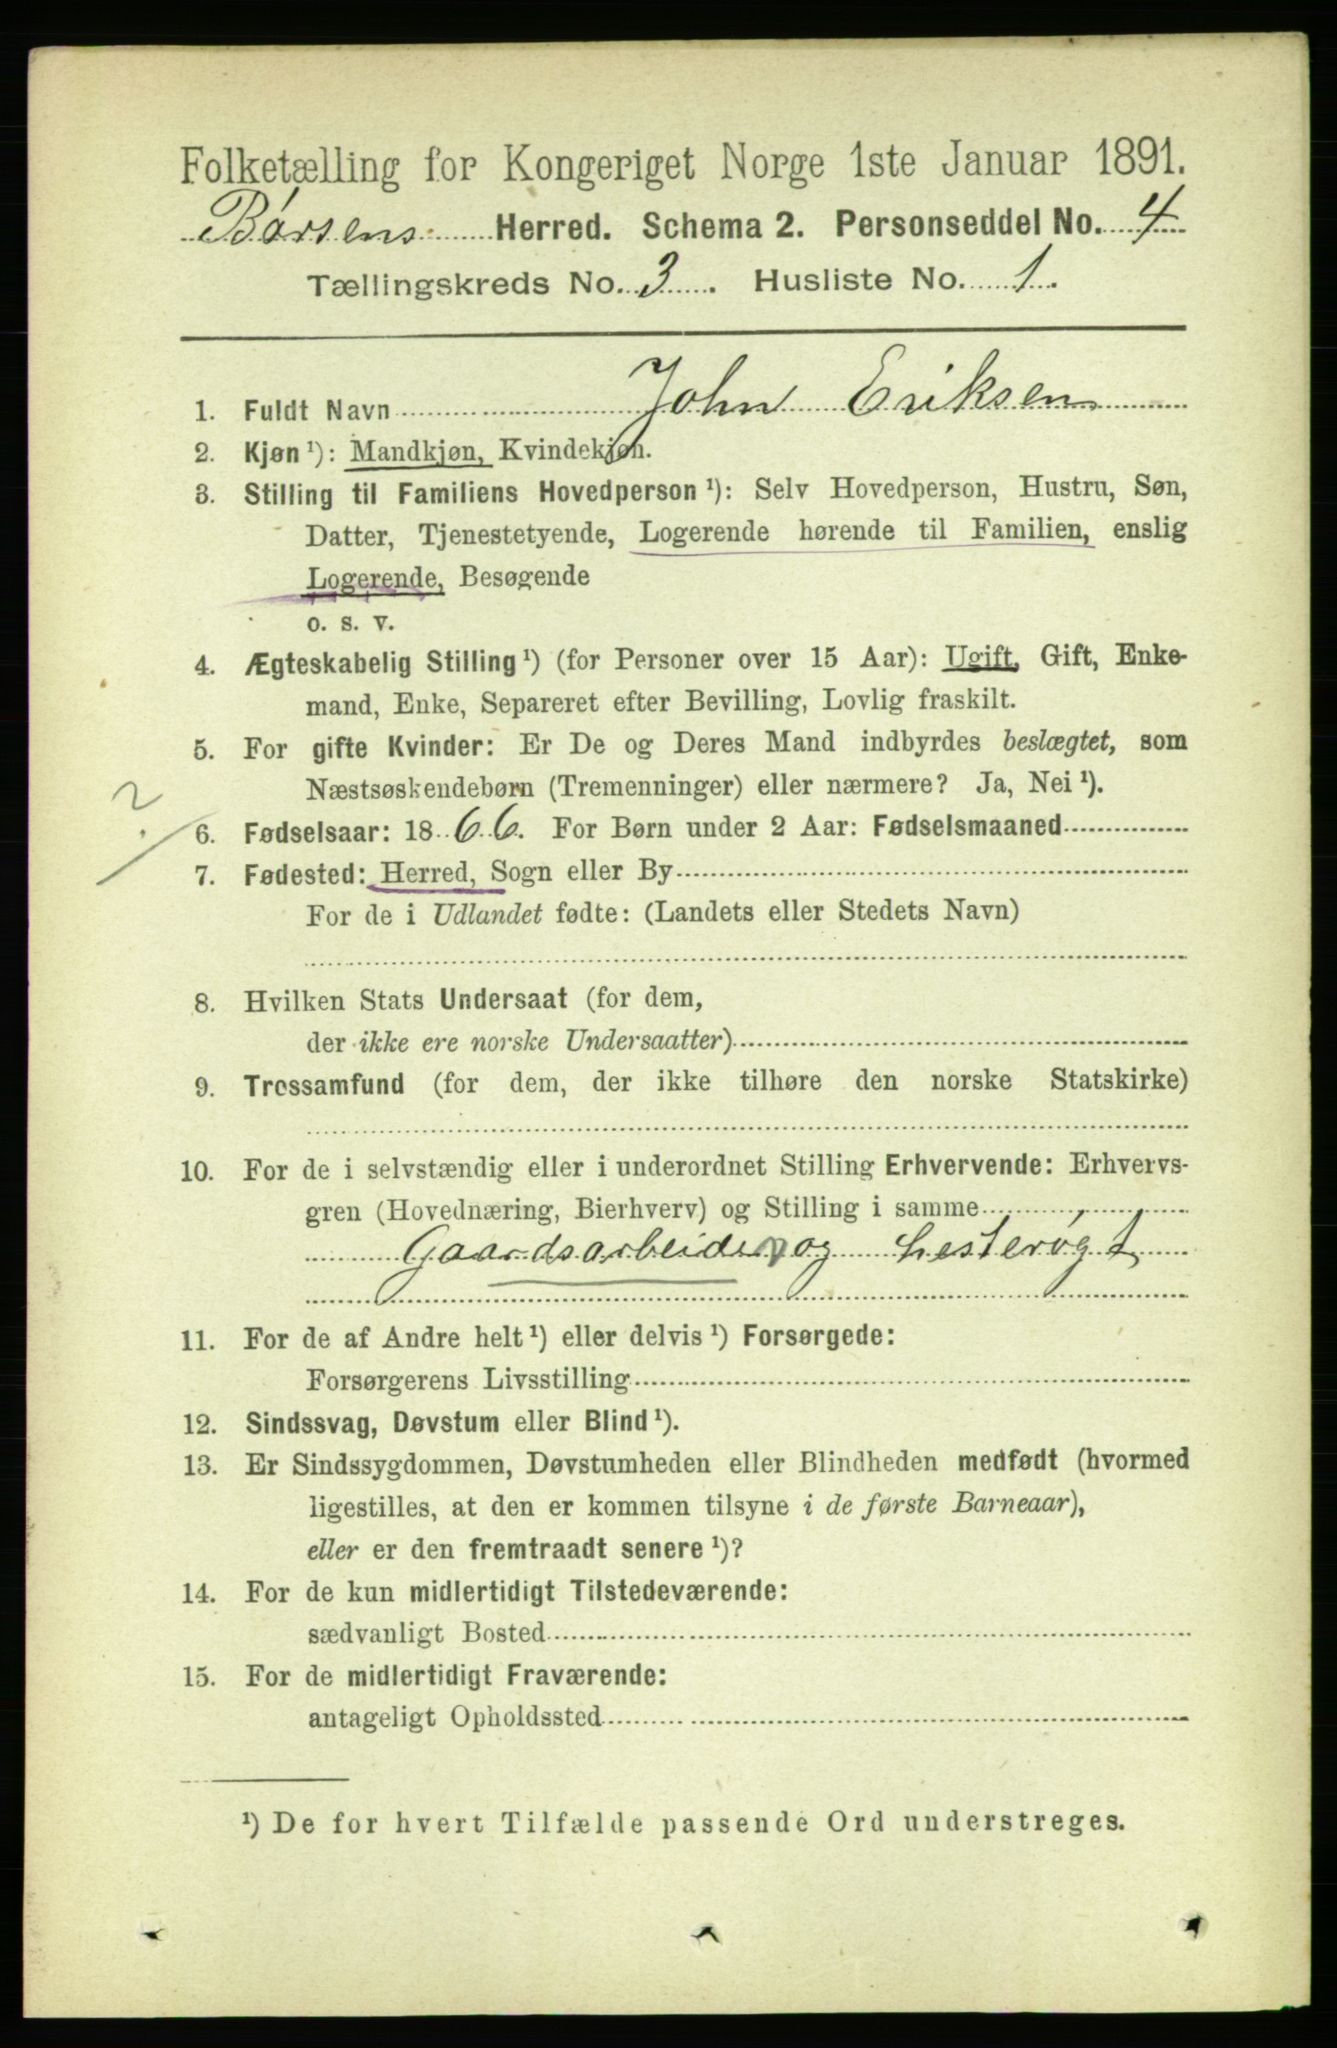 Folketælling for Kongeriget Norge 1ste Januar 1891.
Børsens Herred. Schema 2. Personseddel No. 4
Tællingskreds No. 3. Husliste No. 1.
1. Fuldt Navn John Eriksen
2. Kjøn ¹): Mandkjøn, Kvindekjøn.
3. Stilling til Familiens Hovedperson ¹): Selv Hovedperson, Hustru, Søn,
Datter, Tjenestetyende, Logerende hørende til Familien, enslig
Logerende, Besøgende
o. s. v.
4. Ægteskabelig Stilling ¹) (for Personer over 15 Aar): Ugift, Gift, Enke-
mand, Enke, Separeret efter Bevilling, Lovlig fraskilt.
5. For gifte Kvinder: Er De og Deres Mand indbyrdes beslægtet, som
Næstsøskendebørn (Tremenninger) eller nærmere? Ja, Nei ¹).
?
6. Fødselsaar: 1866. For Børn under 2 Aar: Fødselsmaaned
7. Fødested: Herred, Sogn eller By
For de i Udlandet fødte: (Landets eller Stedets Navn)
8. Hvilken Stats Undersaat (for dem,
der ikke ere norske Undersaatter)
9. Trossamfund (for dem, der ikke tilhøre den norske Statskirke)
10. For de i selvstændig eller i underordnet Stilling Erhvervende: Erhvervs-
gren (Hovednæring, Bierhverv) og Stilling i samme
Gaardsarbeider og hesterøgt
11. For de af Andre helt ¹) eller delvis ¹) Forsørgede:
Forsørgerens Livsstilling
12. Sindssvag, Døvstum eller Blind ¹).
13. Er Sindssygdommen, Døvstumheden eller Blindheden medfødt (hvormed
ligestilles, at den er kommen tilsyne i de første Barneaar),
eller er den fremtraadt senere ¹)?
14. For de kun midlertidigt Tilstedeværende:
sædvanligt Bosted
15. For de midlertidigt Fraværende:
antageligt Opholdssted
¹) De for hvert Tilfælde passende Ord understreges.